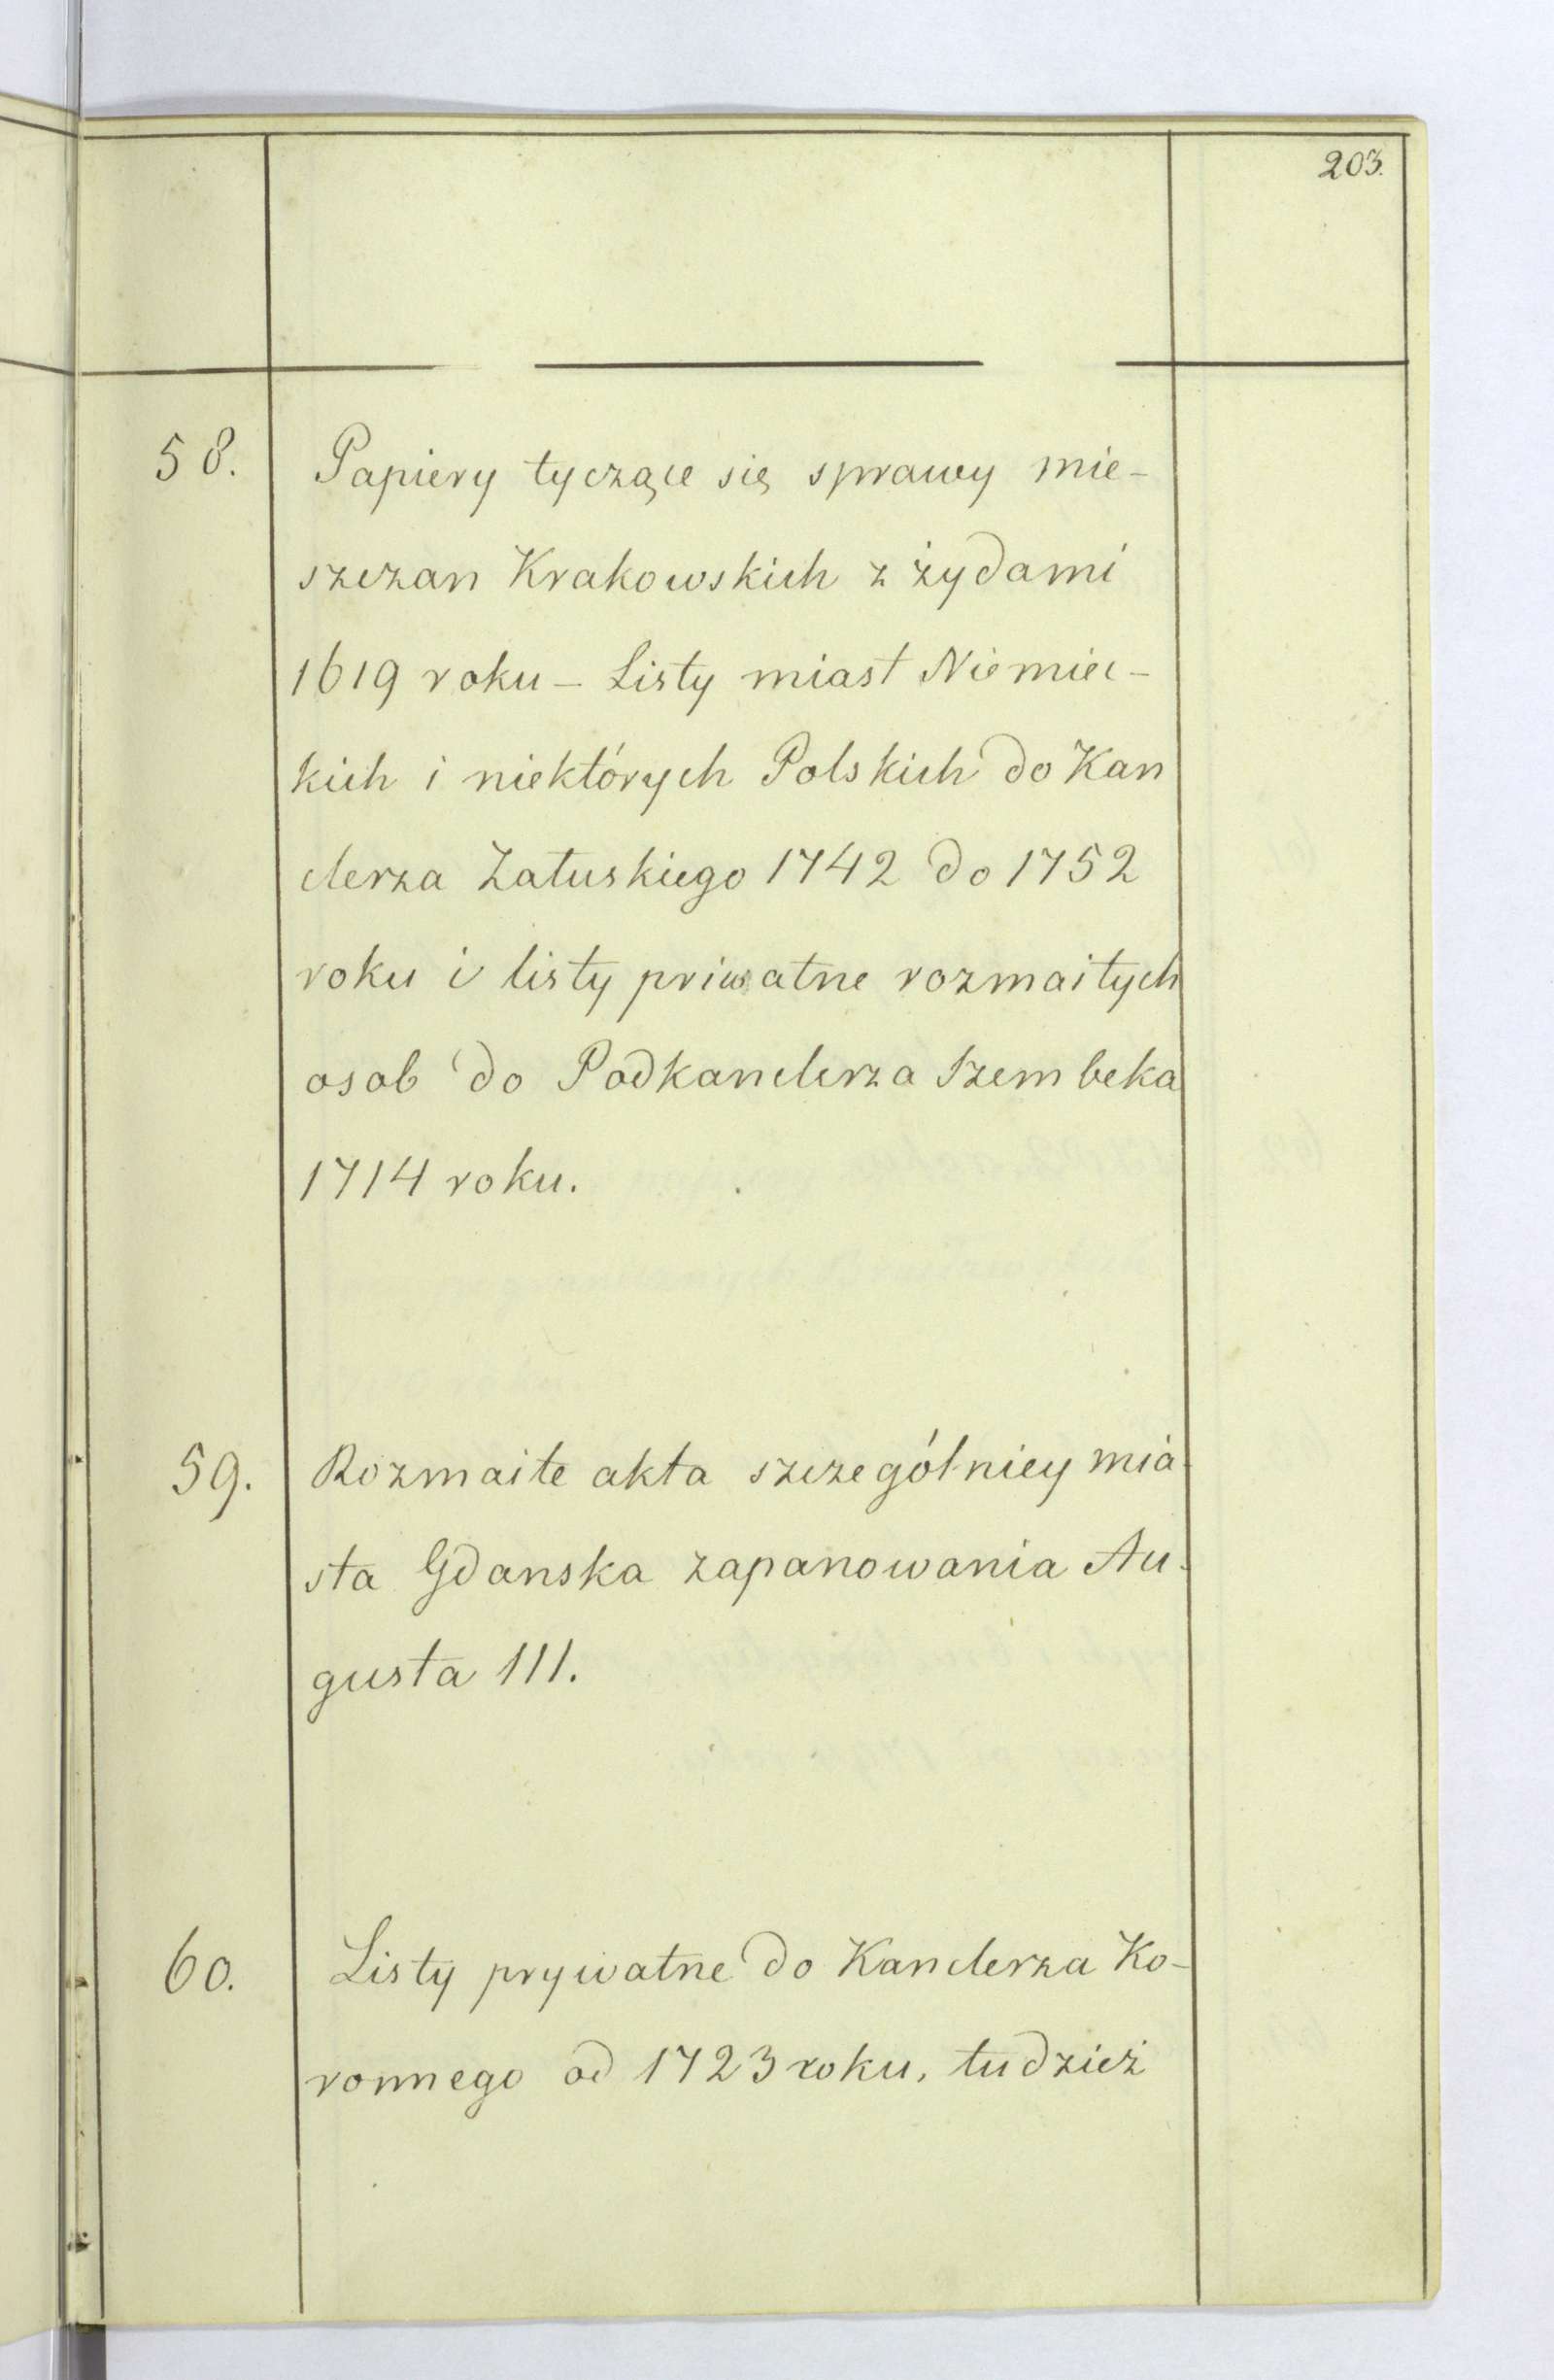 203.
58. Papiery tyczące się sprawy mie-
szczan Krakowskich z żydami
1619 roku - Listy miast Niemiec-
kich i niektórych Polskich do Kan
clerza Załuskiego 1742 do 1752
roku i listy priwatne rozmaitych
osob do Podkanclerza Szembeka
1714 roku.
59. Rozmaite akta szczególniey mia-
sta Gdanska zapanowania Au-
gusta III.
60. Listy prywatne do Kanclerza Ko-
ronnego od 1723 roku, tudzież